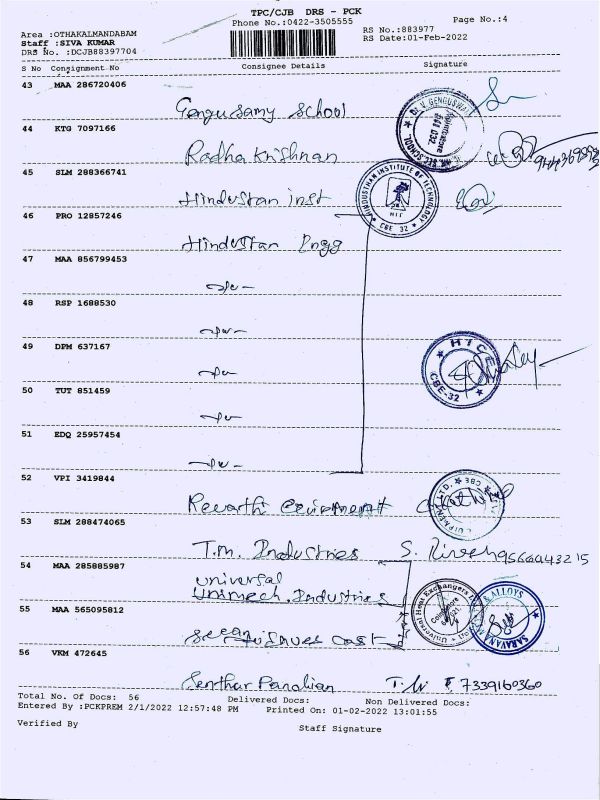 TPC/CJB DRS - PCK
Phone No.:0422-3505555
Page No.:4
Area :OTHAKALMANDABAM
Staff :SIVA KUMAR
DRS No. :DCJB88397704
RS No.:883977
RS Date:01-Feb-2022
S No Consignment No Consignee Details Signature
43 MAA 286720406
Gengusamy School
44 KTG 7097166
Radha Krishnan
45 SLM 288366741
Hindustan inst
HINDUSTHAN INSTITUTE OF TECHNOLOGY
HIT
CBE-32
46 PRO 12857246
Hindustan Engg
47 MAA 856799453
48 RSP 1688530
49 DPM 637167
CBE-32
50 TUT 851459
51 EDQ 25957454
52 VPI 3419844
53 SLM 288474065
T.M. Industries
54 MAA 285885987
Universal
Unimech. Industries
Universal Heat Exchangers
& ALLOYS
55 MAA 565095812
56 VKM 472645
7339160360
Total No. Of Docs: 56 Delivered Docs: Non Delivered Docs:
Entered By :PCKPREM 2/1/2022 12:57:48 PM Printed On: 01-02-2022 13:01:55
Verified By Staff Signature